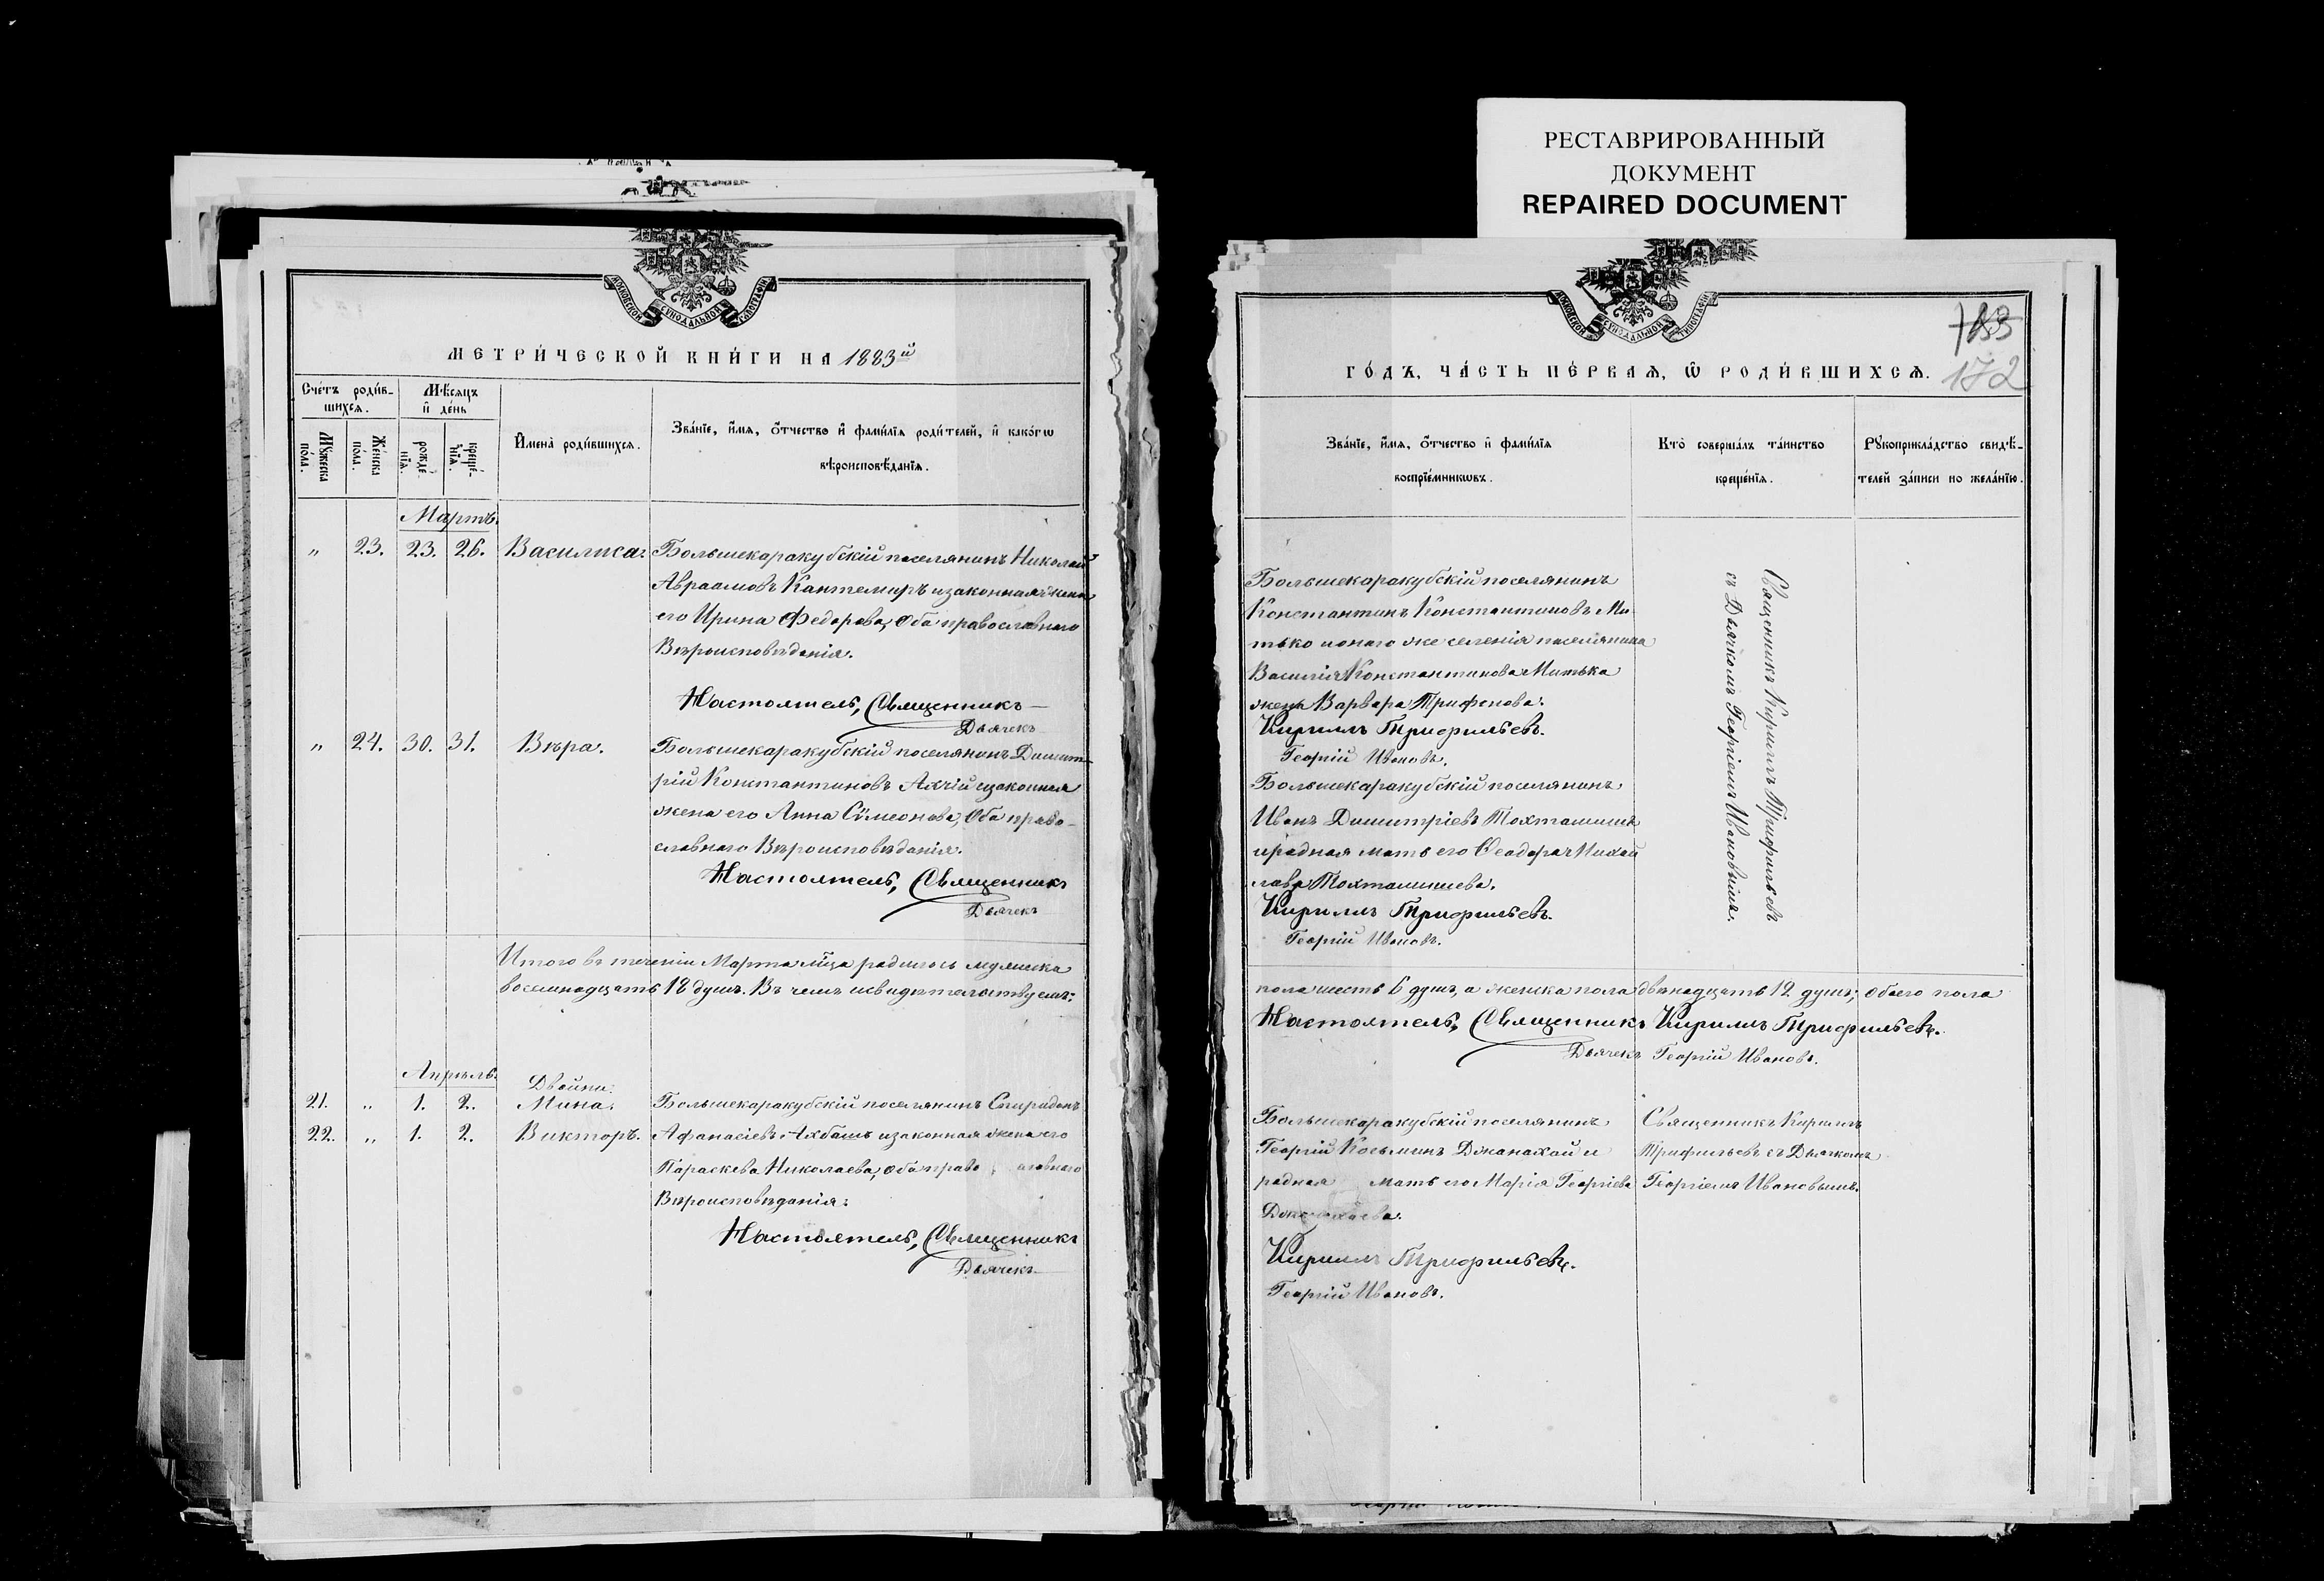 РЕСТАВРИРОВАННЫЙ
ДОКУМЕНТ
REPAIRED DOCUMENT
МОСКОВСКОЙ СУНОДАЛЬНОЙ ТИПОГРАФІИ
МЕТРИ́ЧЕСКОЙ КНИ́ГИ НА 1883й
Сче́тъ роди́в-
шихсѧ.
Мѣ́сяцъ
и҆ де́нь
Мꙋ́жеска
по́ла.
Же́нска
по́ла.
рожде́-
нїѧ.
креще́-
нїѧ.
И҆мена̀ роди́вшихсѧ.
Зва́нїе, и҆́мѧ, ѻ҆́тчество и҆ фами́лїѧ роди́телей, и҆ како́гѡ
вѣроисповѣ́данїѧ.
Мартъ.
„ 23. 23. 26. Василиса.
Большекаракубскій поселянинъ Николай
Авраамовъ Кантемиръ и законная жена
его Ирина Федорова, оба православнаго
Вѣроисповѣданія.
Настоятель, Священникъ
Дьячекъ
„ 24. 30. 31. Вѣра.
Большекаракубскій поселянинъ Димит-
рій Константиновъ и законная
жена его Анна Сѵмеонова, оба право-
славнаго Вѣроисповѣданія.
Настоятель, Священникъ
Дьячекъ
Итого въ теченіи Марта мца родилось мужеска
восемнадцать 18 душъ. Въ чемъ и свидѣтельствуемъ:
Апрѣль.
Двойни:
21. „ 1. 2. Мина.
22. „ 1. 2. Викторъ.
Большекаракубскій поселянинъ Спиридонъ
Афанасіевъ Ахбашъ и законная жена его
Параскева Николаева, оба право славнаго
Вѣроисповѣданія:
Настоятель, Священникъ
Дьячекъ
МОСКОВСКОЙ СУНОДАЛЬНОЙ ТИПОГРАФІИ
172
ГО́ДЪ, ЧА́СТЬ ПЕ́РВАѦ, Ѡ҆ РОДИ́ВШИХСѦ.
Зва́нїе, и҆́мѧ, ѻ҆́тчество и҆ фами́лїѧ
воспрїе́мникѡвъ.
Кто̀ соверша́лъ та́инство
креще́нїѧ.
Рꙋкоприкла́дство свидѣ́-
телей за́писи по жела́нїю.
Большекаракубскій поселянинъ
Константинъ Константиновъ Ми-
тько и онаго же селенія поселянина
Василія Константинова Митька
жена Варвара Трифонова.
Кириллъ Трифильевъ.
Георгій Ивановъ.
Большекаракубскій поселянинъ
Иванъ Димитріевъ Тохтамышъ
и родная мать его Ѳеодора Михай
лова Тохтамышева.
Кириллъ Трифильевъ.
Георгій Ивановъ.
Священникъ Кириллъ Трифильевъ
съ Дьячкомъ Георгіемъ Ивановымъ.
пола шесть 6 душъ, а женска пола двѣнадцать 12 душъ; обоего пола
Настоятель, Священникъ Кириллъ Трифильевъ.
Дьячекъ Георгій Ивановъ.
Большекаракубскій поселянинъ
Георгій Косьминъ Джанахай и
родная мать его Марія Георгіева
Кириллъ Трифильевъ.
Георгій Ивановъ.
Священникъ Кириллъ
Трифильевъ съ Дьячкомъ
Георгіемъ Ивановымъ.